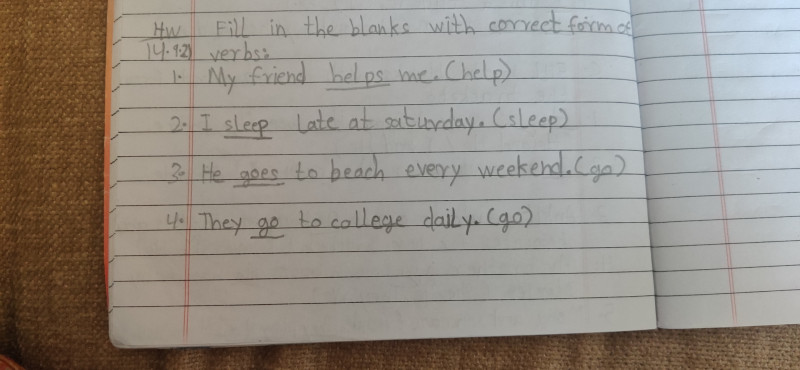 HW Fill in the blanks with correct form of
14.9.21 verbs:
1. My friend helps me. (help)
2. I sleep late at saturday. (sleep)
3. He goes to beach every weekend. (go)
4. They go to college daily. (go)